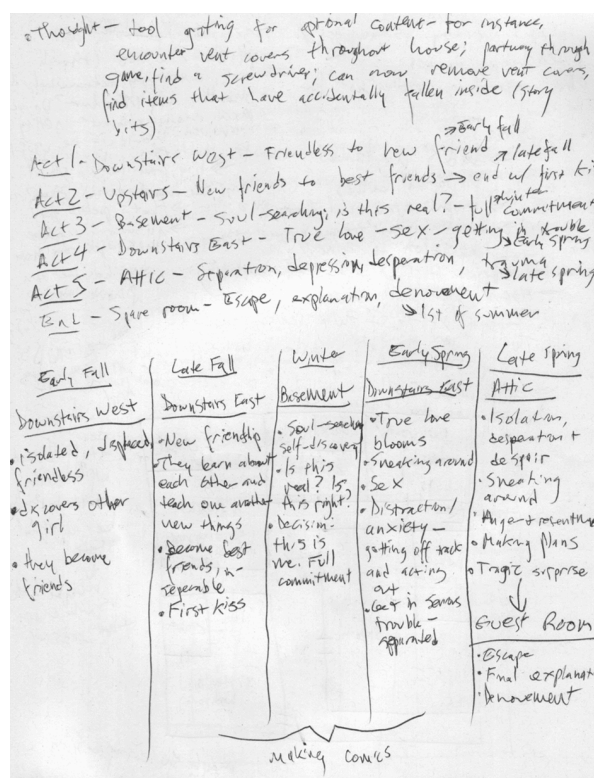 • Thought - tool gating for optional content - for instance,
encounter vent covers throughout house; partway through
game, find a screwdriver; can now remove vent covers,
find items that have accidentally fallen inside (story
bits)
→ Early fall
Act 1 - Downstairs West - Friendless to new friend
→ late fall
Act 2 - Upstairs - New friends to best friends → end w/ first ki
→ winter
Act 3 - Basement - Soul-searching; is this real? - full commitment
Act 4 - Downstairs East - True love - sex - getting in trouble
→ Early spring
Act 5 - Attic - Separation, depression, desperation, trauma
→ late spring
End - Spare room - Escape, explanation, denovement
→ 1st of summer
Early Fall
Downstairs West
• isolated, displaced,
friendless
• discovers other
girl
• they become
friends
Late Fall
Downstairs East
• New friendship
• They learn about
each other and
teach one another
new things
• Become best
friends, in-
seperable
• First kiss
Winter
Basement
• Soul-searching
self-discovery
• Is this
real? Is
this right?
• Decision:
this is
me. Full
commitment
Early Spring
Downstairs East
• True love
blooms
• Sneaking around
• Sex
• Distraction/
anxiety -
getting off track
and acting
out
• Get in serious
trouble -
separated
Late Spring
Attic
• Isolation,
desperation +
despair
• Sneaking
around
• Anger + resentme
• Making plans
• Tragic surprise
Guest Room
• Escape
• Final explanat
• Denovement
Making comics